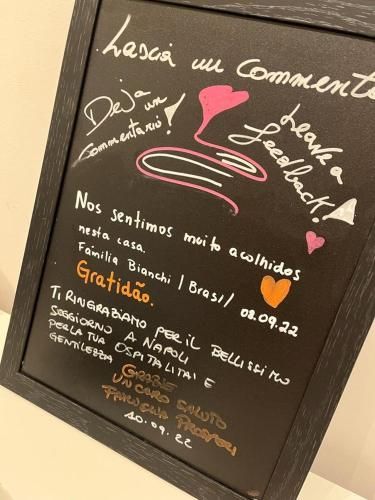 Lascia un commento
Deja un
commentario!
Leave a
feedback!
Nos sentimos muito acolhidos
nesta casa.
Familia Bianchi / Brasil
Gratidão.
08.09.22
TI RINGRAZIAMO PER IL BELLISSIMO
SEGGIORNO A NAPOLI
PER LA TUA OSPITALITAI E
GENTILEZZA
GRAZIE
UN CARO SALUTO
10.09.22